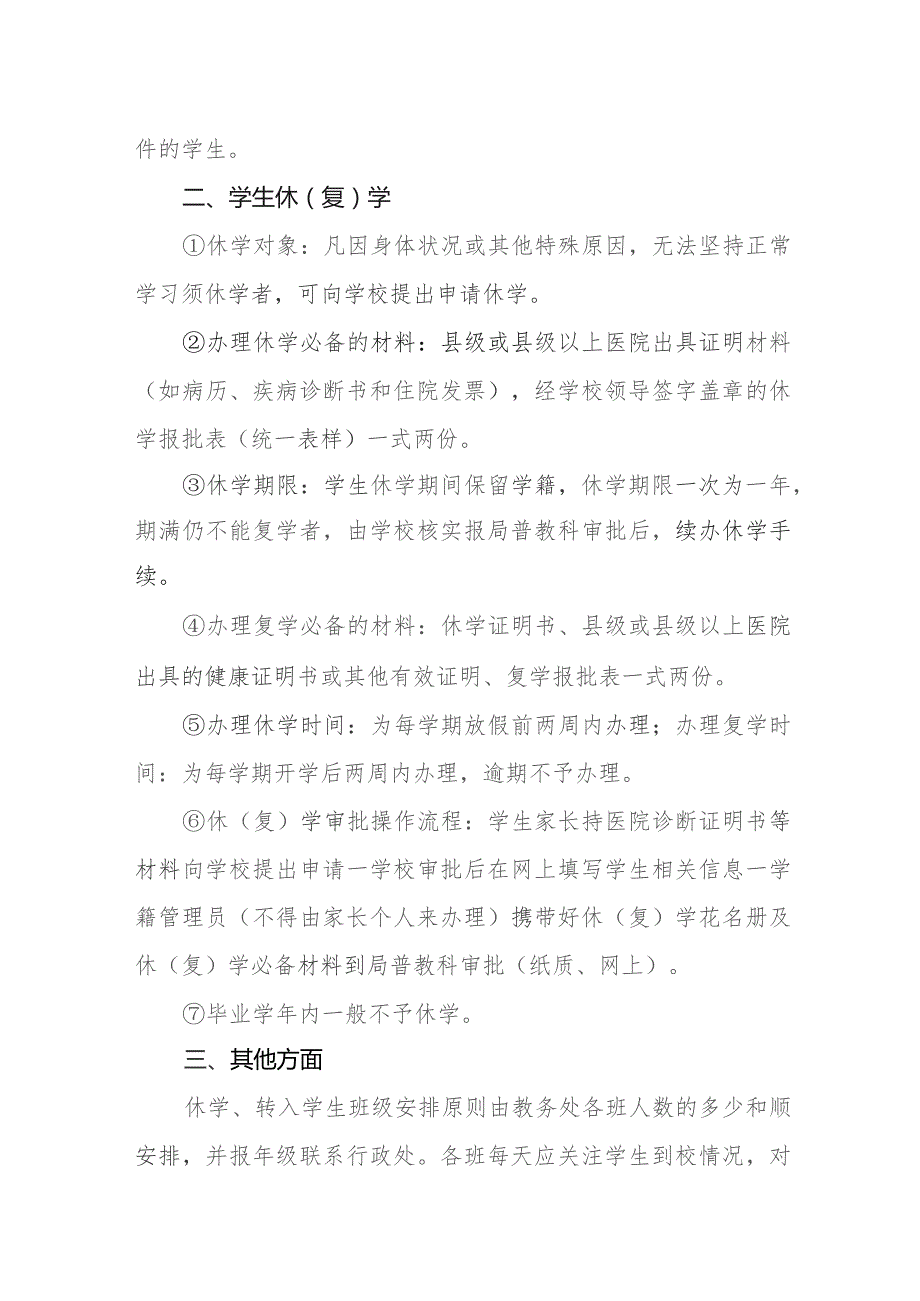 件的学生。
二、学生休（复）学
①休学对象：凡因身体状况或其他特殊原因，无法坚持正常
学习须休学者，可向学校提出申请休学。
②办理休学必备的材料：县级或县级以上医院出具证明材料
（如病历、疾病诊断书和住院发票），经学校领导签字盖章的休
学报批表（统一表样）一式两份。
③休学期限：学生休学期间保留学籍，休学期限一次为一年，
期满仍不能复学者，由学校核实报局普教科审批后，续办休学手
续。
④办理复学必备的材料：休学证明书、县级或县级以上医院
出具的健康证明书或其他有效证明、复学报批表一式两份。
⑤办理休学时间：为每学期放假前两周内办理；办理复学时
间：为每学期开学后两周内办理，逾期不予办理。
⑥休（复）学审批操作流程：学生家长持医院诊断证明书等
材料向学校提出申请一学校审批后在网上填写学生相关信息一学
籍管理员（不得由家长个人来办理）携带好休（复）学花名册及
休（复）学必备材料到局普教科审批（纸质、网上）。
⑦毕业学年内一般不予休学。
三、其他方面
休学、转入学生班级安排原则由教务处各班人数的多少和顺
安排，并报年级联系行政处。各班每天应关注学生到校情况，对